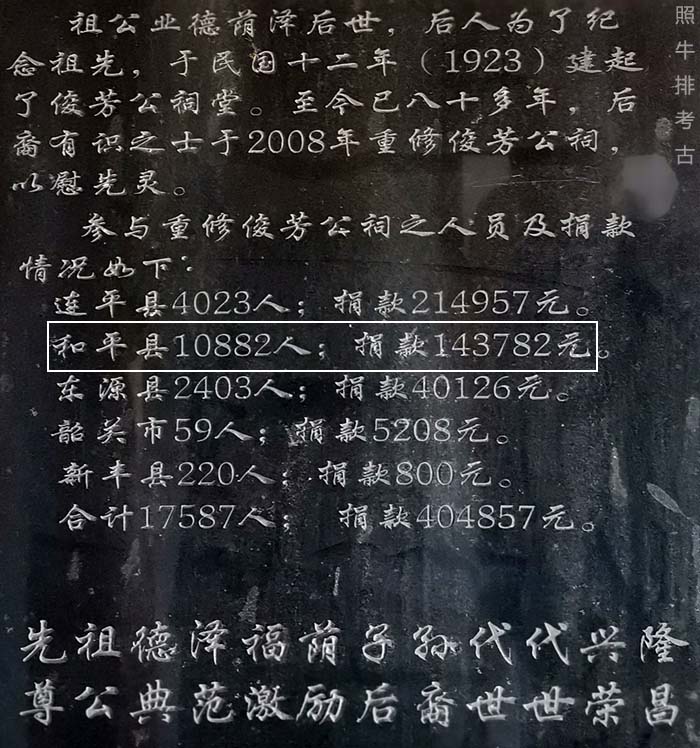 祖公业德荫泽后世，后人为了纪
念祖先，于民国十二年（1923）建起
了俊芳公祠堂。至今已八十多年，后
裔有识之士于2008年重修俊芳公祠，
以慰先灵。
参与重修俊芳公祠之人员及捐款
情况如下：
连平县4023人；捐款214957元。
和平县10882人；捐款143782元。
东源县2403人；捐款40126元。
韶关市59人；捐款5208元。
新丰县220人；捐款800元。
合计17587人；捐款404857元。
先祖德泽福荫子孙代代兴隆
尊公典范激励后裔世世荣昌
照牛排考古